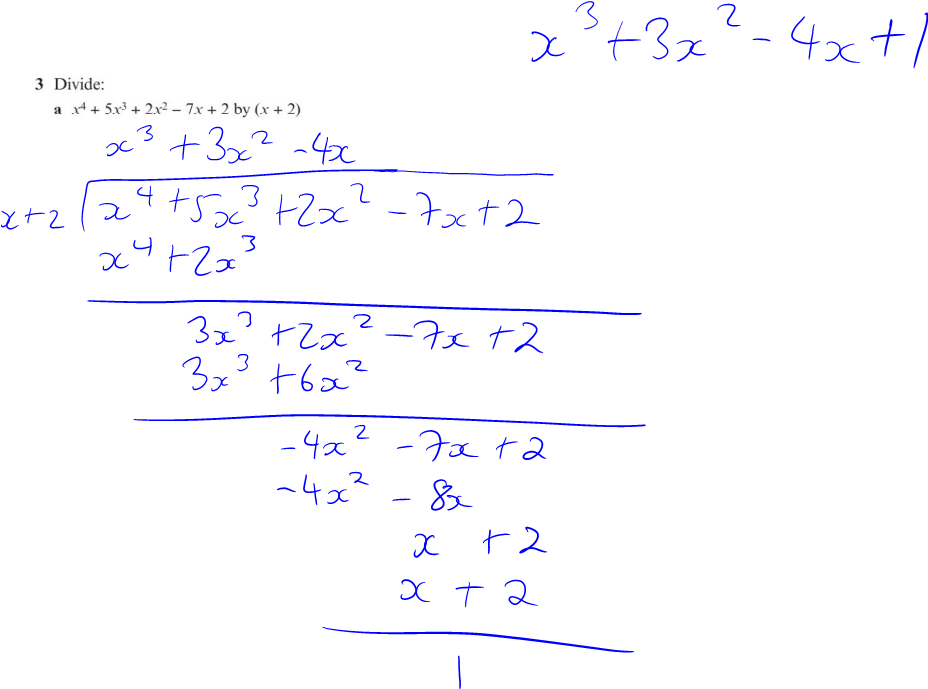 x³ + 3x² - 4x + 1
3 Divide:
a x⁴ + 5x³ + 2x² – 7x + 2 by (x + 2)
x³ + 3x² - 4x
x + 2 x⁴ + 5x³ + 2x² - 7x + 2
x⁴ + 2x³
3x³ + 2x² - 7x + 2
3x³ + 6x²
-4x² - 7x + 2
-4x² - 8x
x + 2
x + 2
1